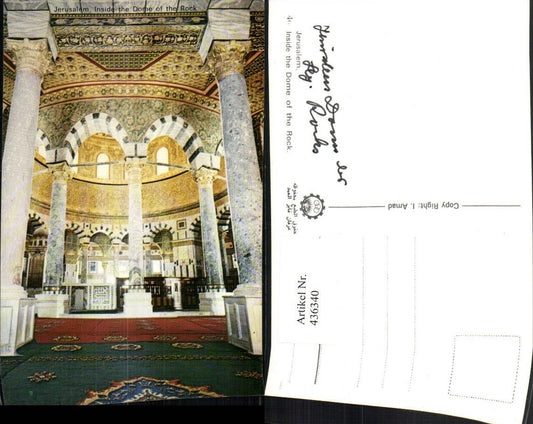 Jerusalem, Inside the Dome of the Rock
4-
Jerusalem.
Inside the Dome of the Rock.
Jerusalem Dom
Copy Right: I. Amad
Artikel Nr.
436340